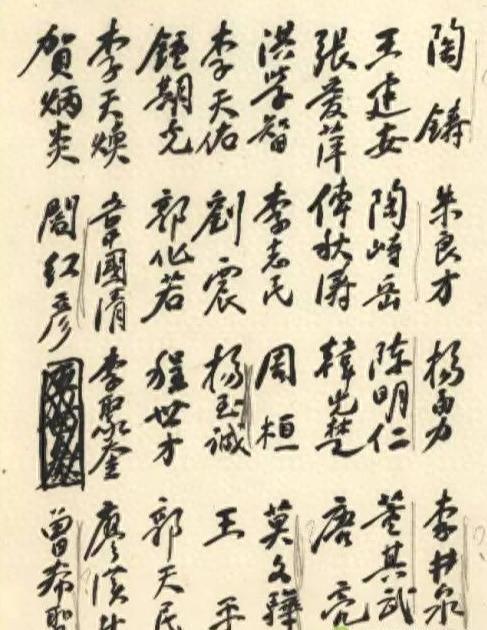 陶鑄 朱良才 楊勇 李井泉
王建安 陶峙岳 陈明仁 董其武
張愛萍 傅秋濤 韓先楚 唐亮
洪學智 李志民 周桓 莫文驊
李天佑 劉震 楊至誠 王平
鍾期光 郭化若 程世才 郭天民
李天煥 韋國清 李聚奎 廖漢生
賀炳炎 閻红彦 曾希聖